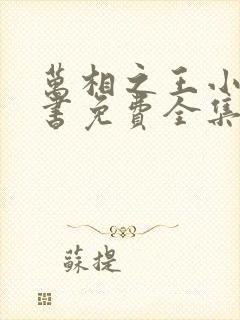 萬相之王小
書免費全集
蘇提